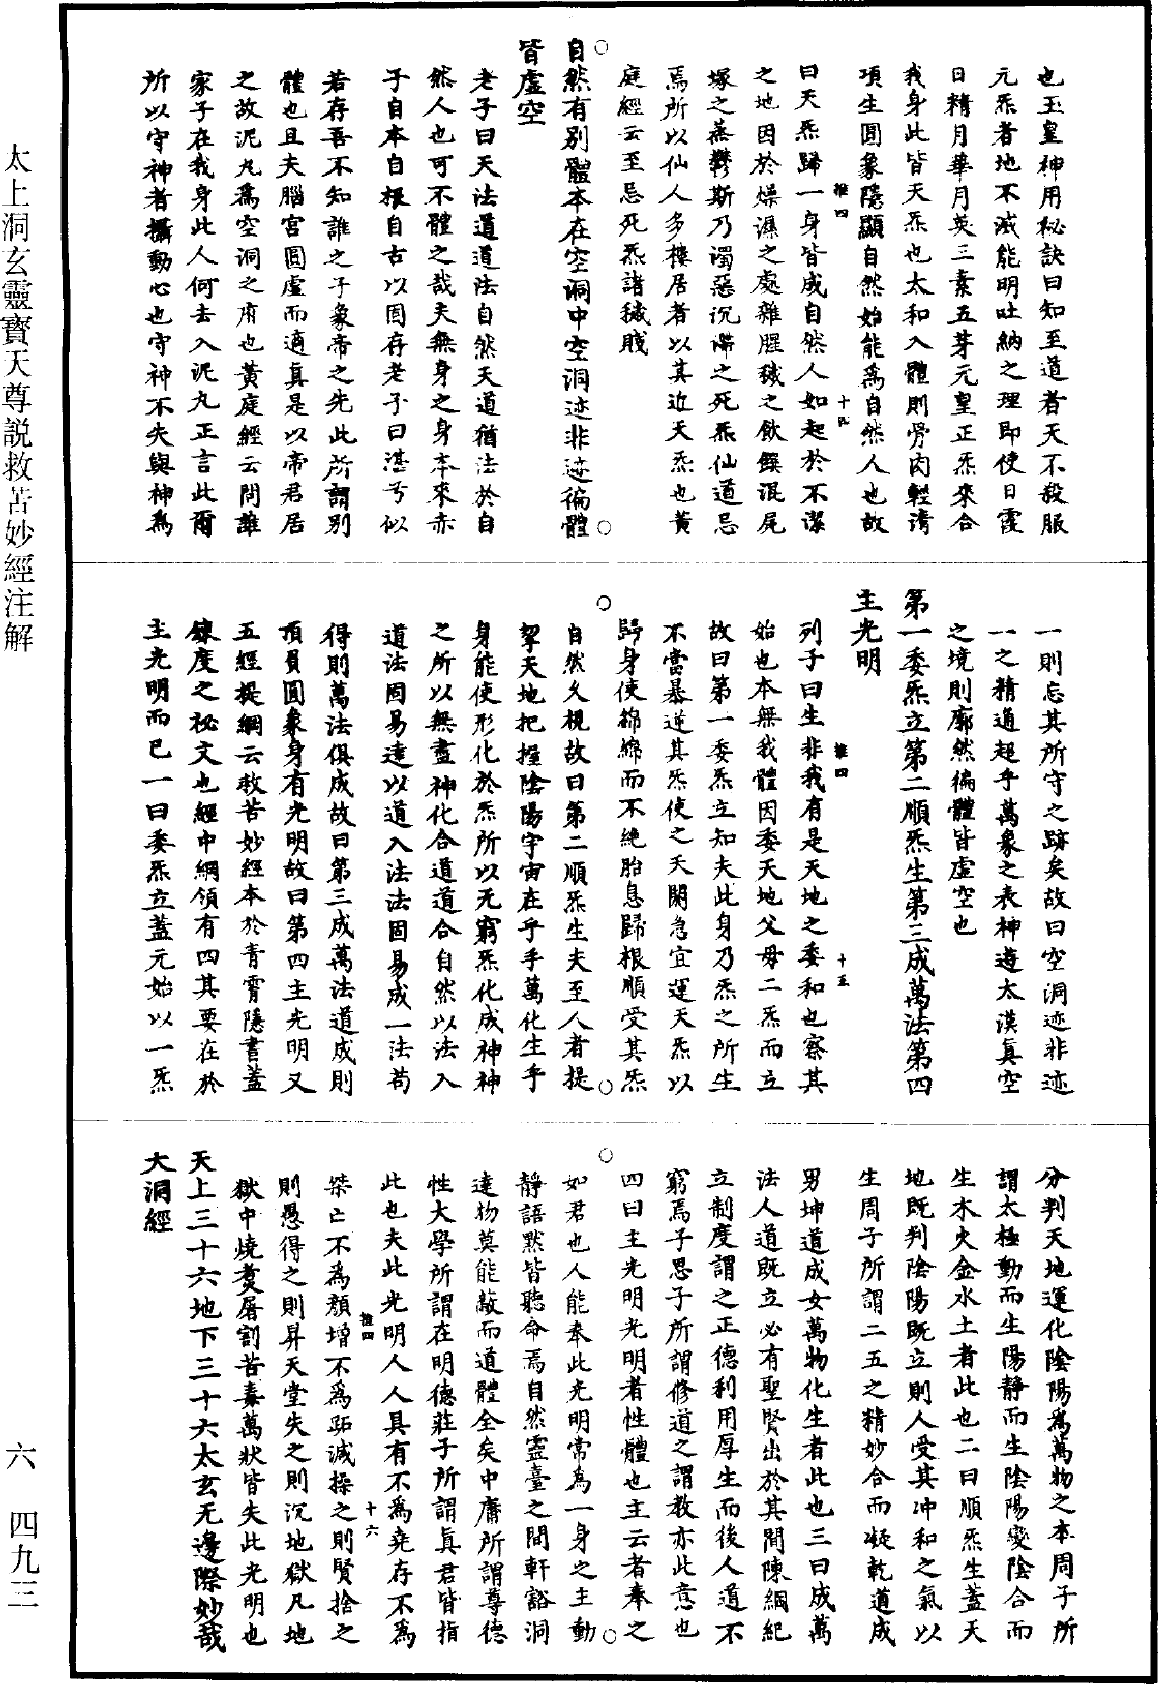 也玉皇神用秘訣曰知至道者天不殺服
元炁者地不滅能明吐納之理即使日霞
日精月華月英三素五芽元皇正炁來合
我身此皆天炁也太和入體則骨肉輕清
項生圓象隱顯自然始能為自然人也故
推四 十四
曰天炁歸一身皆成自然人如起於不潔
之地因於燥濕之處雜腥穢之飲饌混屍
塚之蒸鬱斯乃濁惡沉滯之死炁仙道忌
焉所以仙人多樓居者以其近天炁也黃
庭經云至忌死炁諸穢賤
自然有別體本在空洞中空洞迹非迹徧體
皆虛空
老子曰天法道道法自然天道猶法於自
然人也可不體之哉夫無身之身本來亦
子自本自根自古以固存老子曰湛兮似
若存吾不知誰之子象帝之先此所謂別
體也且夫腦宮圓虛而適真是以帝君居
之故泥丸為空洞之府也黃庭經云問誰
家子在我身此人何去入泥丸正言此爾
所以守神者攝動心也守神不失與神為
一則忘其所守之跡矣故曰空洞迹非迹
一之精通超乎萬象之表神遊太漠真空
之境則廓然徧體皆虛空也
第一委炁立第二順炁生第三成萬法第四
主光明
推四 十五
列子曰生非我有是天地之委和也察其
始也本無我體因委天地父母二炁而立
故曰第一委炁立知夫此身乃炁之所生
不當暴逆其炁使之夭閼急宜運天炁以
歸身使綿綿而不絶胎息歸根順受其炁
自然久視故曰第二順炁生夫至人者提
挈天地把握陰陽宇宙在乎手萬化生乎
身能使形化於炁所以无窮炁化成神神
之所以無盡神化合道道合自然以法入
道法固易達以道入法法固易成一法苟
得則萬法俱成故曰第三成萬法道成則
項負圓象身有光明故曰第四主光明又
五經提綱云救苦妙經本於青霄隱書蓋
鍊度之祕文也經中綱領有四其要在於
主光明而已一曰委炁立蓋元始以一炁
分判天地運化陰陽為萬物之本周子所
謂太極動而生陽靜而生陰陽變陰合而
生水火金木土者此也二曰順炁生蓋天
地既判陰陽既立則人受其冲和之氣以
生周子所謂二五之精妙合而凝乾道成
男坤道成女萬物化生者此也三曰成萬
法人道既立必有聖賢出於其間陳綱紀
立制度謂之正德利用厚生而後人道不
窮焉子思子所謂修道之謂教亦此意也
四曰主光明光明者性體也主云者奉之
如君也人能奉此光明常為一身之主動
靜語默皆聽命焉自然靈臺之間軒豁洞
達物莫能蔽而道體全矣中庸所謂尊德
性大學所謂在明德莊子所謂真君皆指
此也夫此光明人人具有不為堯存不為
推四 十六
桀亡不為顏增不為跖減操之則賢捨之
則愚得之則昇天堂失之則沉地獄凡地
獄中燒煑屠割苦毒萬狀皆失此光明也
天上三十六地下三十六太玄无邊際妙哉
大洞經
太上洞玄靈寶天尊説救苦妙經注解
六 四九三